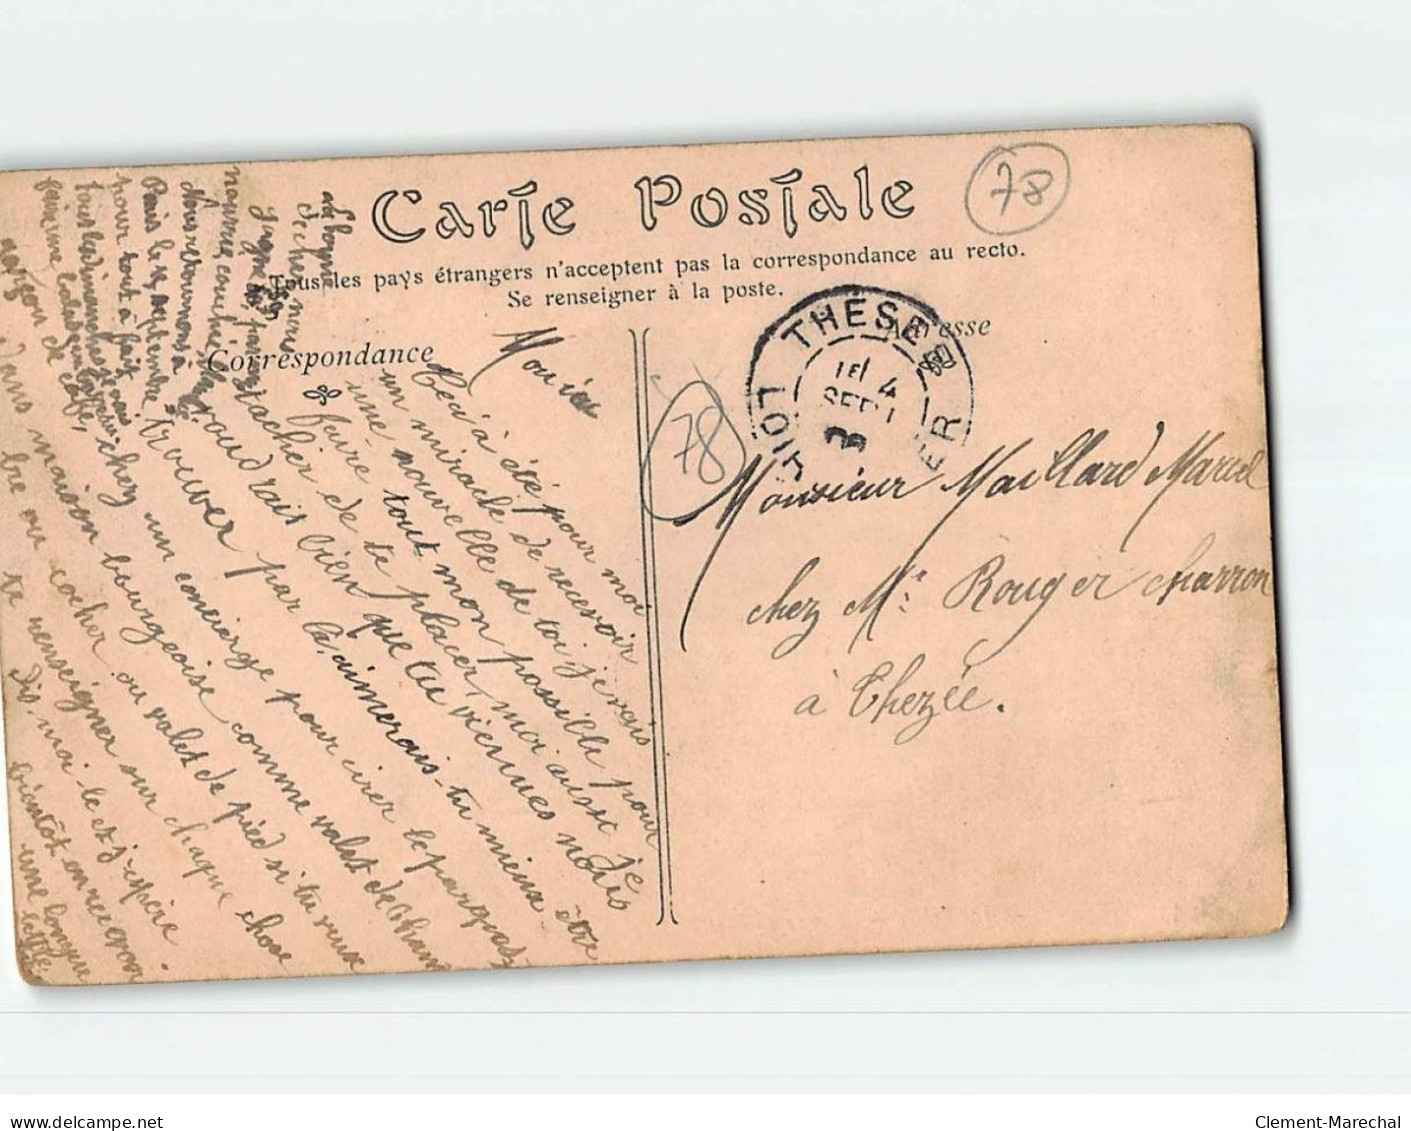 Carte Postale
Tous les pays étrangers n'acceptent pas la correspondance au recto.
Se renseigner à la poste.
Correspondance
Adresse
78
78
THÉSÉE
LOIR
CHER
4
SEPT
Monsieur Maillard Marcel
chez Mr Rouger charron
à Thezée.
Ceci à été pour moi
un miracle de recevoir
une nouvelle de toi je vais
faire tout mon possible pour
tacher de te placer, moi aussi je
voudrais bien que tu viennes nous
trouver par là. aimerais-tu mieux être
chez un concierge pour cirer le parquet
dans maison bourgeoise comme valet de cham
bre ou cocher ou valet de pied si tu veux
te renseigner sur chaque chose
Dis moi-le et j'espère
bientôt en recevoir
une longue
lettre
nous retournons à
Paris le 14 septembre
pour tout à fait
tous les dimanches je vais
faire une balade
garçon de café,